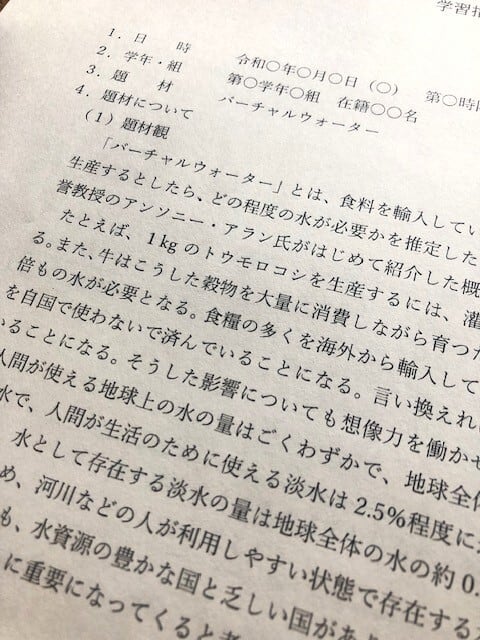 学習指
1．日　時　令和〇年〇月〇日（〇）　第〇時
2．学年・組　第〇学年〇組　在籍〇〇名
3．題　材　バーチャルウォーター
4．題材について
（1）題材観
「バーチャルウォーター」とは、食料を輸入してい
生産するとしたら、どの程度の水が必要かを推定した
誉教授のアンソニー・アラン氏がはじめて紹介した概
たとえば、1kgのトウモロコシを生産するには、灌
る。また、牛はこうした穀物を大量に消費しながら育つ
倍もの水が必要となる。食糧の多くを海外から輸入して
を自国で使わないで済んでいることになる。言い換えれ
いることになる。そうした影響についても想像力を働かせ
人間が使える地球上の水の量はごくわずかで、地球全体
水で、人間が生活のために使える淡水は2.5%程度に
水として存在する淡水の量は地球全体の水の約0.
め、河川などの人が利用しやすい状態で存在する
も、水資源の豊かな国と乏しい国があ
に重要になってくると考